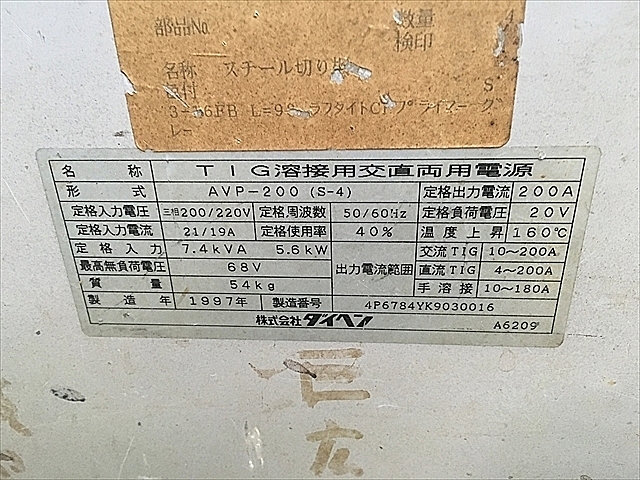 部品No 数量 4
検印
名称 スチール切り
S
L=9
レー
名称 TIG溶接用交直両用電源
形式 AVP-200 (S-4) 定格出力電流 200A
定格入力電圧 三相200/220V 定格周波数 50/60Hz 定格負荷電圧 20V
定格入力電流 21/19A 定格使用率 40% 温度上昇 160℃
定格入力 7.4kVA 5.6kW 出力電流範囲 交流TIG 10~200A
最高無負荷電圧 68V 直流TIG 4~200A
質量 54kg 手溶接 10~180A
製造年 1997年 製造番号 4P6784YK9030016
株式会社ダイヘン A6209